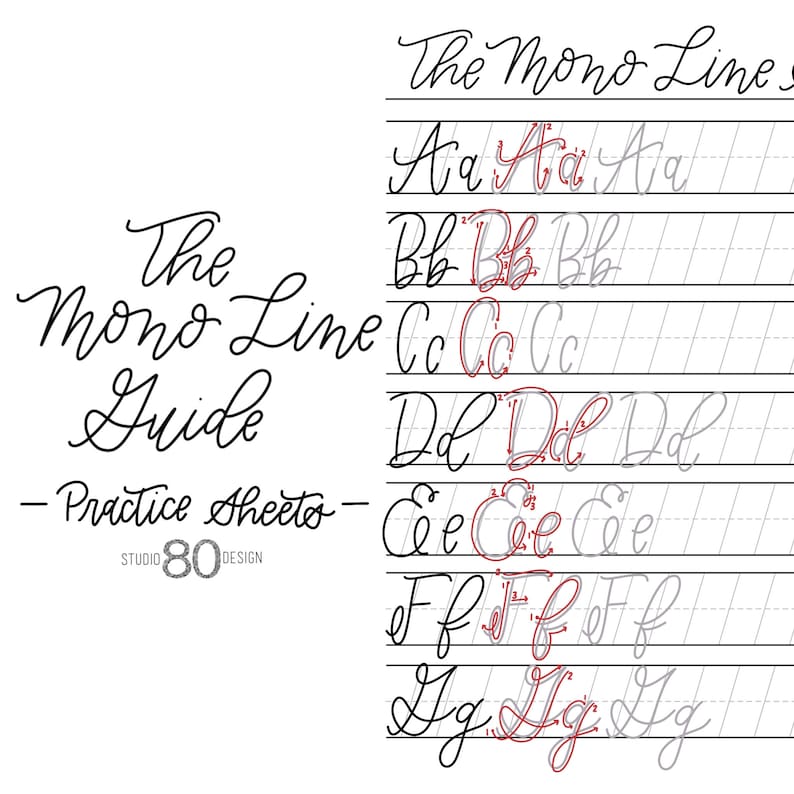 The
Mono Line
Guide
- Practice Sheets -
STUDIO 80 DESIGN
The Mono Line
Aa Aa Aa
Bb Bb Bb
Cc Cc Cc
Dd Dd Dd
Ee Ee Ee
Ff Ff Ff
Gg Gg Gg